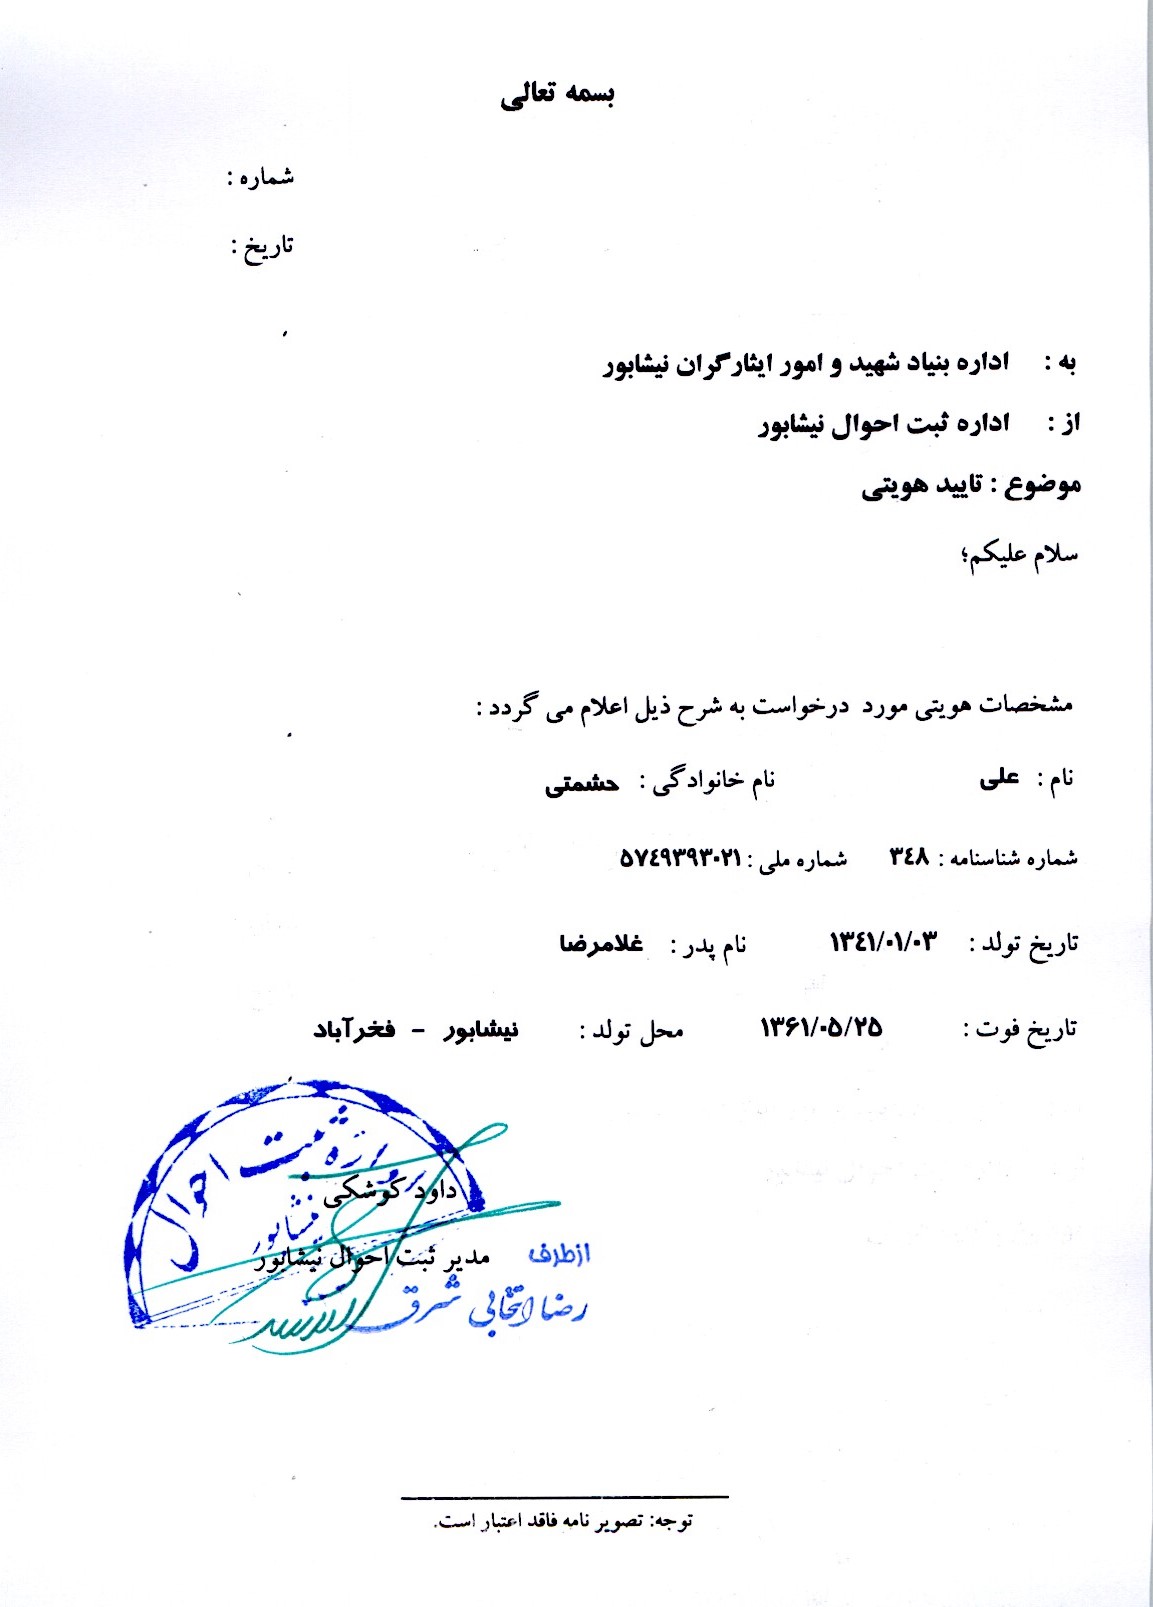 بسمه تعالی
شماره :
تاریخ :
به : اداره بنیاد شهید و امور ایثارگران نیشابور
از : اداره ثبت احوال نیشابور
موضوع : تایید هویتی
سلام علیکم؛
مشخصات هویتی مورد درخواست به شرح ذیل اعلام می گردد :
نام : علی نام خانوادگی : حشمتی
شماره شناسنامه : ۳۴۸ شماره ملی : ۵۷۴۹۳۹۳۰۲۱
تاریخ تولد : ۱۳۴۱/۰۱/۰۳ نام پدر : غلامرضا
تاریخ فوت : ۱۳۶۱/۰۵/۲۵ محل تولد : نیشابور - فخرآباد
ثبت احوال
نیشابور
داود کوشکی
مدیر ثبت احوال نیشابور
ازطرف
رضا انتخابی شرق
توجه: تصویر نامه فاقد اعتبار است.